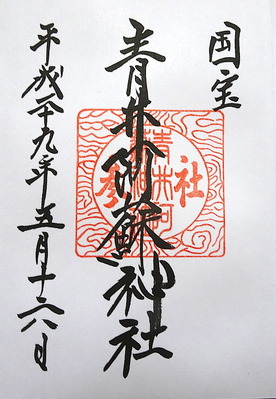 国宝
青井阿蘇神社
平成二十九年五月十六日
社参